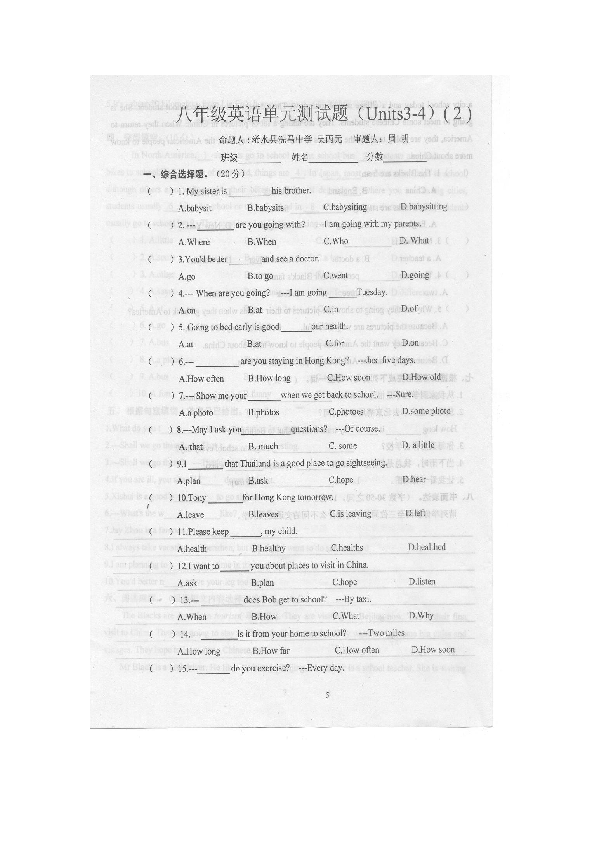 八年级英语单元测试题（Units3-4）( 2 )
命题人：洗马中学 审题人：周 明
班级________ 姓名________ 分数________
一、综合选择题。（20分）
( ) 1. My sister is ________ his brother.
A.babysit B.babysits C.babysiting D babysitting
( ) 2. --- ________ are you going with? ---I am going with my parents.
A.Where B.When C.Who D. What
( ) 3.You'd better ________ and see a doctor.
A.go B.to go C.went D.going
( ) 4.--- When are you going? ---I am going ________ Tuesday.
A.on B.at C.in D.of
( ) 5. Going to bed early is good ________ our health.
A.at B.at C.for D.on
( ) 6.--- ________ are you staying in Hong Kong? ---Just five days.
A.How often B.How long C.How soon D.How old
( ) 7.--- Show me your ________ when we get back to school. ---Sure.
A.a photo B.photos C.photoes D.some photo
( ) 8.---May I ask you ________ questions? ---Of course.
A. that B. much C. some D. a little
( ) 9.I ________ that Thailand is a good place to go sightseeing.
A.plan B.ask C.hope D.hear
( ) 10.Tony ________ for Hong Kong tomorrow.
A.leave B.leaves C.is leaving D.left
( ) 11.Please keep ________, my child.
A.health B.healthy C.healths D.healthed
( ) 12.I want to ________ you about places to visit in China.
A.ask B.plan C.hope D.listen
( ) 13.--- ________ does Bob get to school? ---By taxi.
A.When B.How C.What D.Why
( ) 14. ________ is it from your home to school? ---Two miles
A.How long B.How far C.How often D.How soon
( ) 15.--- ________ do you exercise? ---Every day.
5